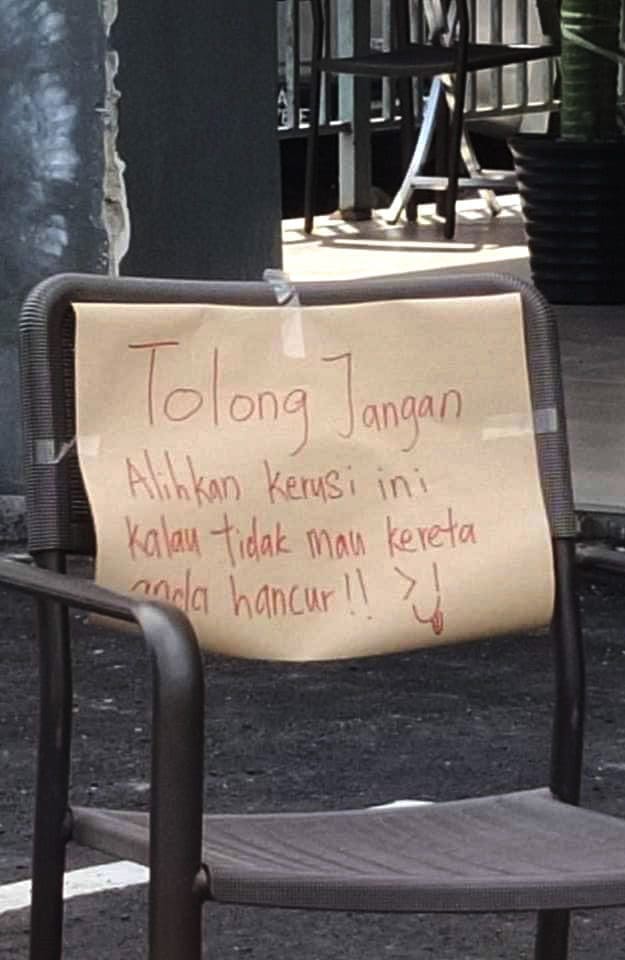 Tolong Jangan
Alihkan kerusi ini
kalau tidak mau kereta
anda hancur!!